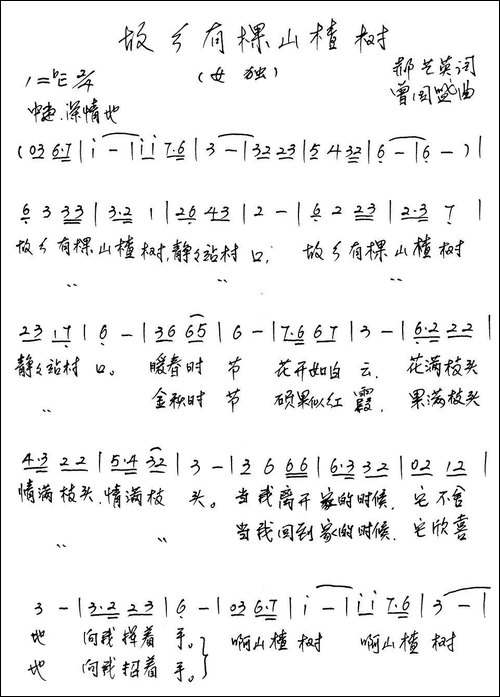 故乡有棵山楂树
(女独)
1=♭E 2/4
郝芝英词
曾国盛曲
中速.深情地
(03 6·7|i - |i i 7·6|3 - |32 23|5 4 32|6 - |6 - )|
6 3 33|3·2 1|26 43|2 - |6 2 23|2·3 7|
故乡有棵山楂树,静静站村口, 故乡有棵山楂树
〃 〃 〃
23 17|6 - |36 65|6 - |7·6 67|3 - |6·2 22|
静静站村口。 暖春时节 花开如白云, 花满枝头
〃 金秋时节 硕果似红霞, 果满枝头
4·3 22|5·4 32|3 - |3 6 66|6·3 32|02 12|
情满枝头,情满枝头。当我离开家的时候, 它不舍
〃 〃 当我回到家的时候, 它欣喜
3 - |3·2 23|6 - |03 6·7|i - |i i 7·6|3 - |
地 向我挥着手。 啊山楂树 啊山楂树
地 向我招着手。